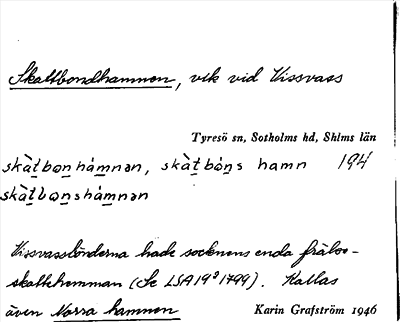 Skattbondhamnen, vik vid Vissvass
Tyresö sn, Sotholms hd, Shlms län
skàt̲bon̲hámnən, skàt̲bón̲s hamn 194
skàt̲bon̲shámnən
Vissvassbönderna hade socknens enda frälse-
skattehemman (Se LSA 19⁹ 1799). Kallas
även Norra hamnen Karin Grafström 1946